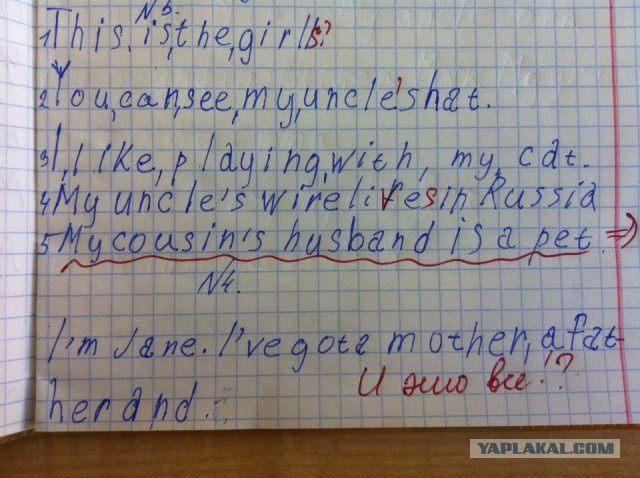 N3.
1 This, is, the, girls?
2 You, can, see, my, uncle's hat.
3 I, like, playing, with, my, cat.
4 My uncle's wife lives in Russia
5 My cousin's husband is a pet. =)
N4.
I'm Jane. I've gota mother, a fat
her and.
И это все!?
YAPLAKAL.COM